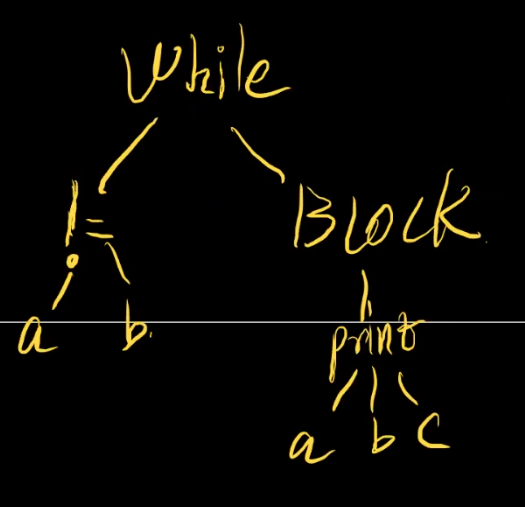 While
!= Block
a b print
a b c